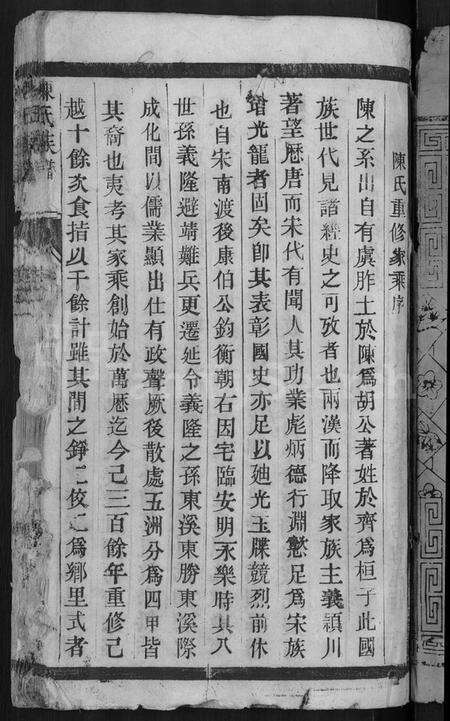 陳氏重修家乘序
陳之系出自有虞胙土於陳爲胡公著姓於齊爲桓子此國
族世代見諸經史之可攷者也兩漢而降取家族主義潁川
著望歷唐而宋代有聞人其功業彪炳德行淵懿足爲宋族
增光龍者固矣卽其表彰國史亦足以廸光玉牒競烈前休
也自宋南渡後康伯公鈞衡朝右因宅臨安明永樂時其八
世孫義隆避靖難兵更遷姚令義隆之孫東溪東勝東溪際
成化間以儒業顯出仕有政聲厥後散處五洲分爲四甲皆
其裔也夷考其家乘創始於萬歷迄今已三百餘年重修已
越十餘次食指以千餘計雖其間之錚〻佼〻爲鄉里式者
陳氏族譜